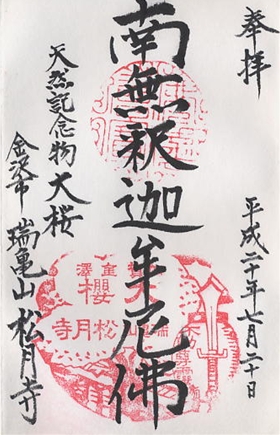 奉拝
平成二十年七月二十日
南無釈迦牟尼佛
天然記念物大桜
金沢市 瑞亀山 松月寺
金澤
櫻
松月寺